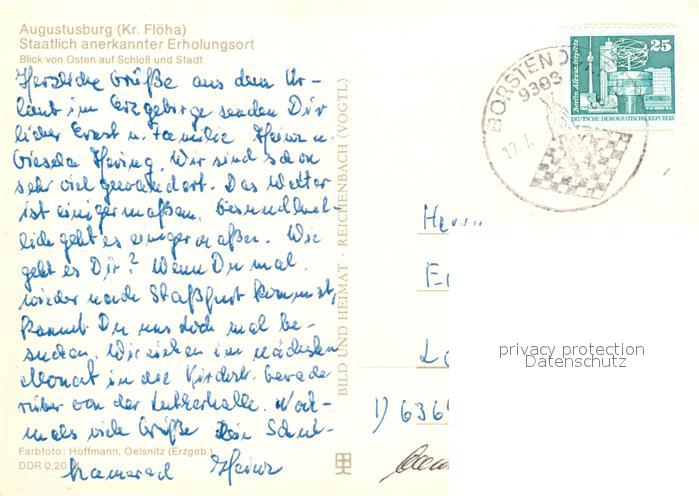 Augustusburg (Kr. Flöha)
Staatlich anerkannter Erholungsort
Blick von Osten auf Schloß und Stadt
Herzliche Grüße aus dem Ur-
laub im Erzgebirge senden Dir
lieber Ernst u. Familie Heinz u.
Gisela Hering. Wir sind schon
sehr viel gewandert. Das Wetter
ist einigermaßen. Gesundheit-
lich geht es einigermaßen. Wie
geht es Dir? Wenn Du mal
wieder nach Staßfurt kommst,
kannst Du uns doch mal be-
suchen. Wir ziehen im nächsten
Monat in die Kirchstr. Gerade
rüber von der Lutherhalle. Noch-
mals viele Grüße Dein Schul-
kamerad Heinz
Farbfoto: Hoffmann, Oelsnitz (Erzgeb.)
DDR 0,20 M
BILD UND HEIMAT · REICHENBACH (VOGTL)
BORSTENDORF
9303
17.1.
25
Berlin, Alexanderplatz
DEUTSCHE DEMOKRATISCHE REPUBLIK
Herrn
privacy protection
Datenschutz